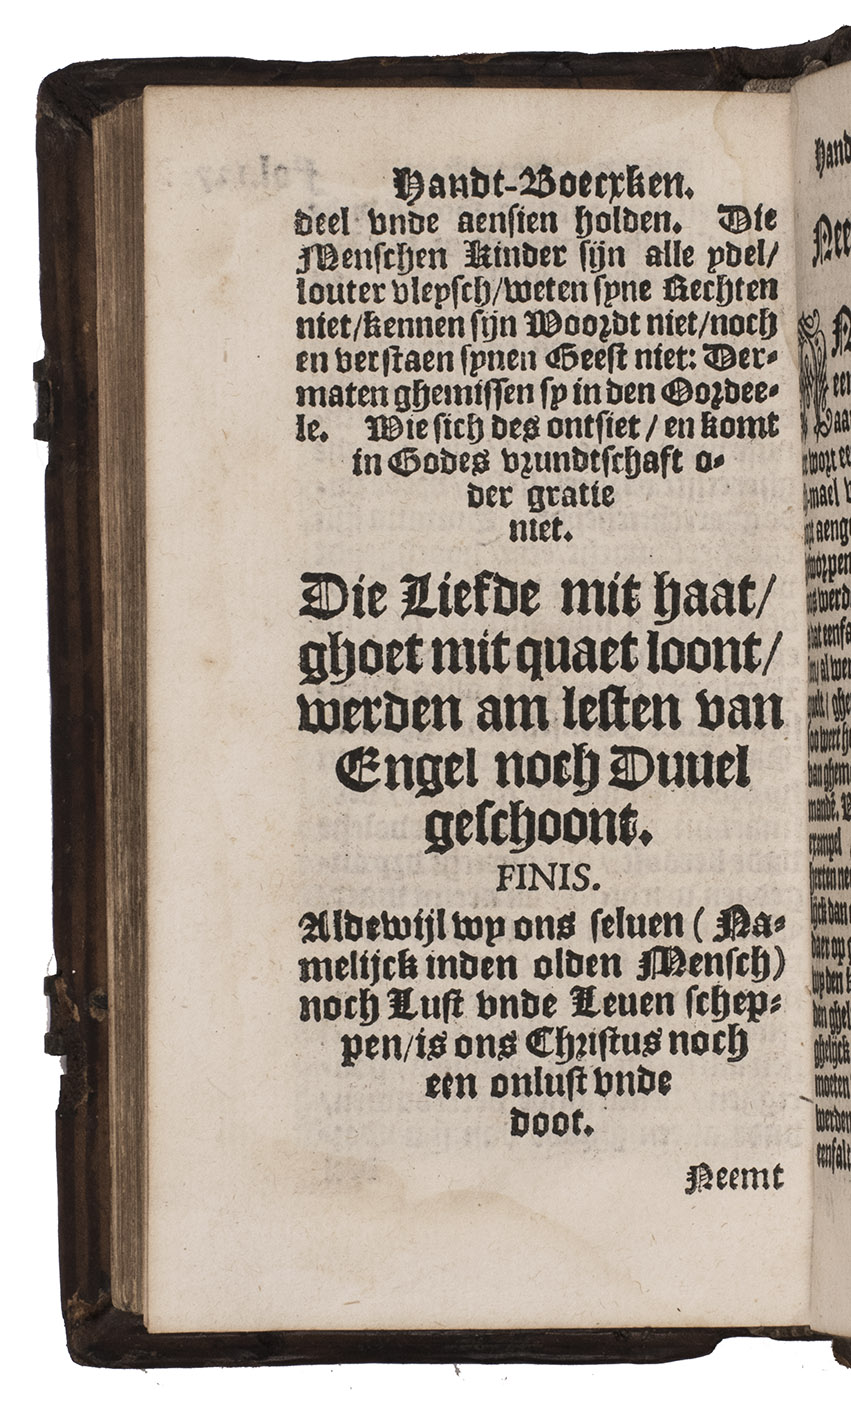 Handt-Boecxken.
deel vnde aensien holden. Die
Menschen Kinder sijn alle ydel/
louter vleysch/weten syne Rechten
niet/kennen sijn Woordt niet/noch
en verstaen synen Geest niet: Der-
maten ghemissen sy in den Oordee-
le. Wie sich des ontsiet / en komt
in Godes vrundtschaft o-
der gratie
niet.
Die Liefde mit haat/
ghoet mit quaet loont/
werden am lesten van
Engel noch Duuel
geschoont.
FINIS.
Aldewijl wy ons seluen ( Na-
melijck inden olden Mensch)
noch Lust vnde Leuen schep-
pen/is ons Christus noch
een onlust vnde
doot.
Neemt